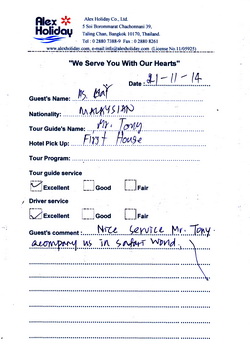 Alex Holiday
Alex Holiday Co., Ltd.
5 Soi Borommarat Chachonnani 39,
Taling Chan, Bangkok 10170, Thailand.
Tel : 0 2880 7388-9 Fax : 0 2880 8261
www.alexholiday.com, e-mail info@alexholiday.com (License No.11/05925)
"We Serve You With Our Hearts"
Date : 21-11-14
Guest's Name:
Nationality: MALAYSIAN
Tour Guide's Name: Mr. Tony
Hotel Pick Up: First House
Tour Program:
Tour guide service
Excellent Good Fair
Driver service
Excellent Good Fair
Guest's comment : Nice service Mr. Tony
acompany us in safari world.